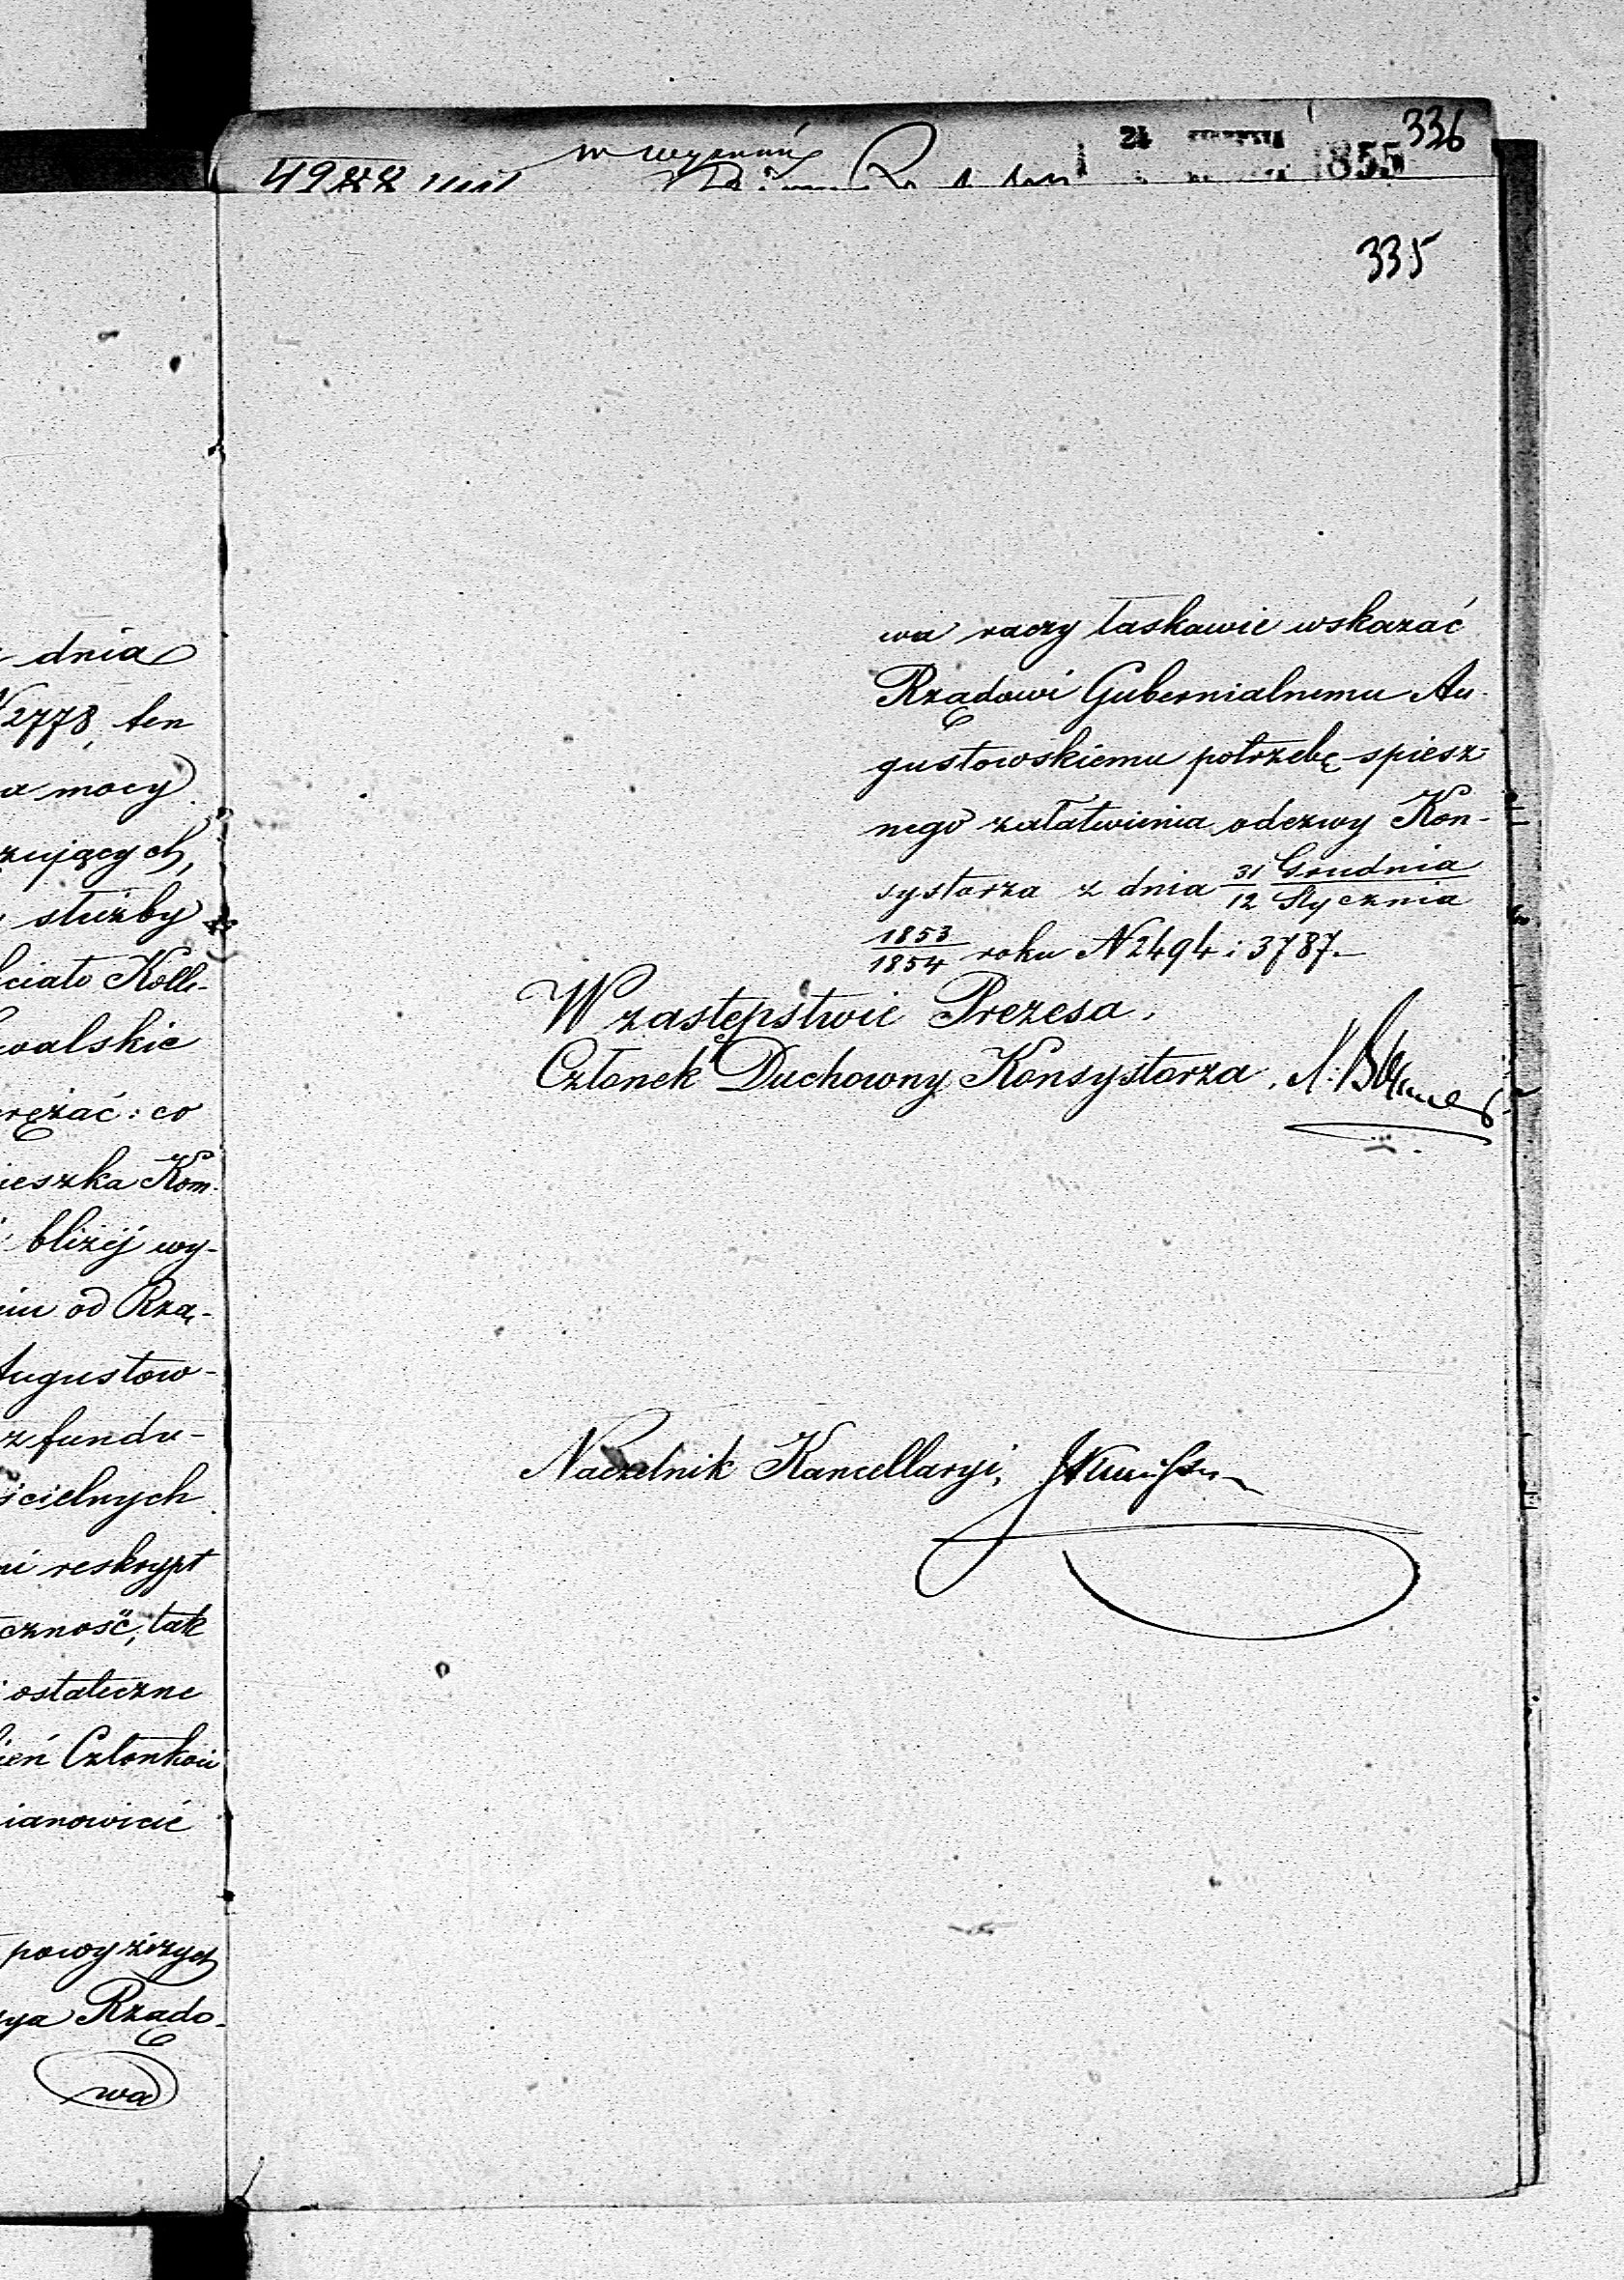 dnia
2778, ten
a mocy
zujących,
służby
ciato Kolle-
walskie
rężać: co
ieszka Kom-
bliżéj wy-
niu od Rzą-
Augustow-
z fundu-
ścielnych
ni reskrypt
czność, tak
ostateczne
ień Członków
ianowicie
powyższych
ya Rządo-
wa
336
24
1855
335
wa raczy łaskawie wskazać
Rządowi Gubernialnemu Au-
gustowskiemu potrzebę spiesz-
nego załatwienia odezwy Kon-
systorza z dnia 31 Grudnia / 12 Stycznia
1853 / 1854 roku N 2494 i 3787.—
W zastępstwie Prezesa,
Członek Duchowny Konsystorza,
Naczelnik Kancellaryi,